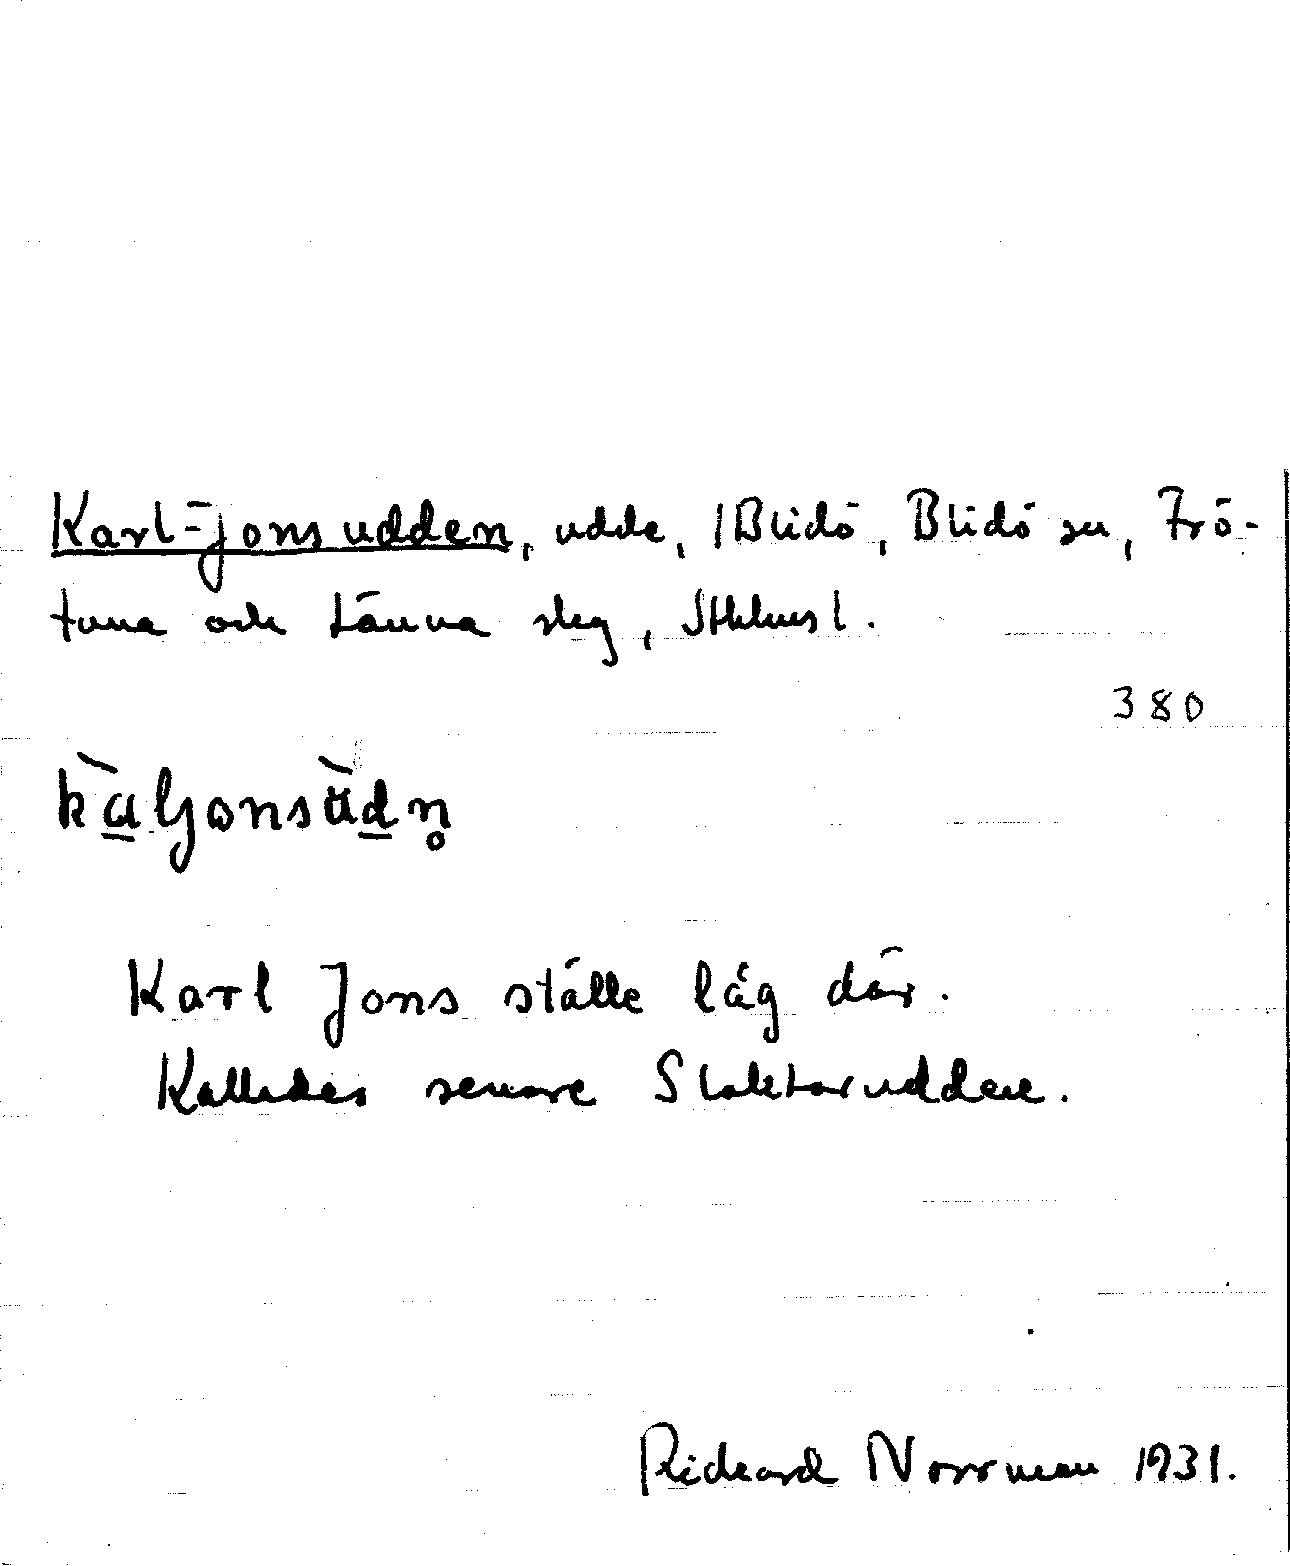 Karl-Jonsudden, udde, /Blidö, Blidö sn, Frö-
tuna och Länna slg, Sthlms l.
380
kàljonsùdn̥
Karl Jons ställe låg där.
Kallades senare Slaktarudden.
Rickard Norrman 1931.